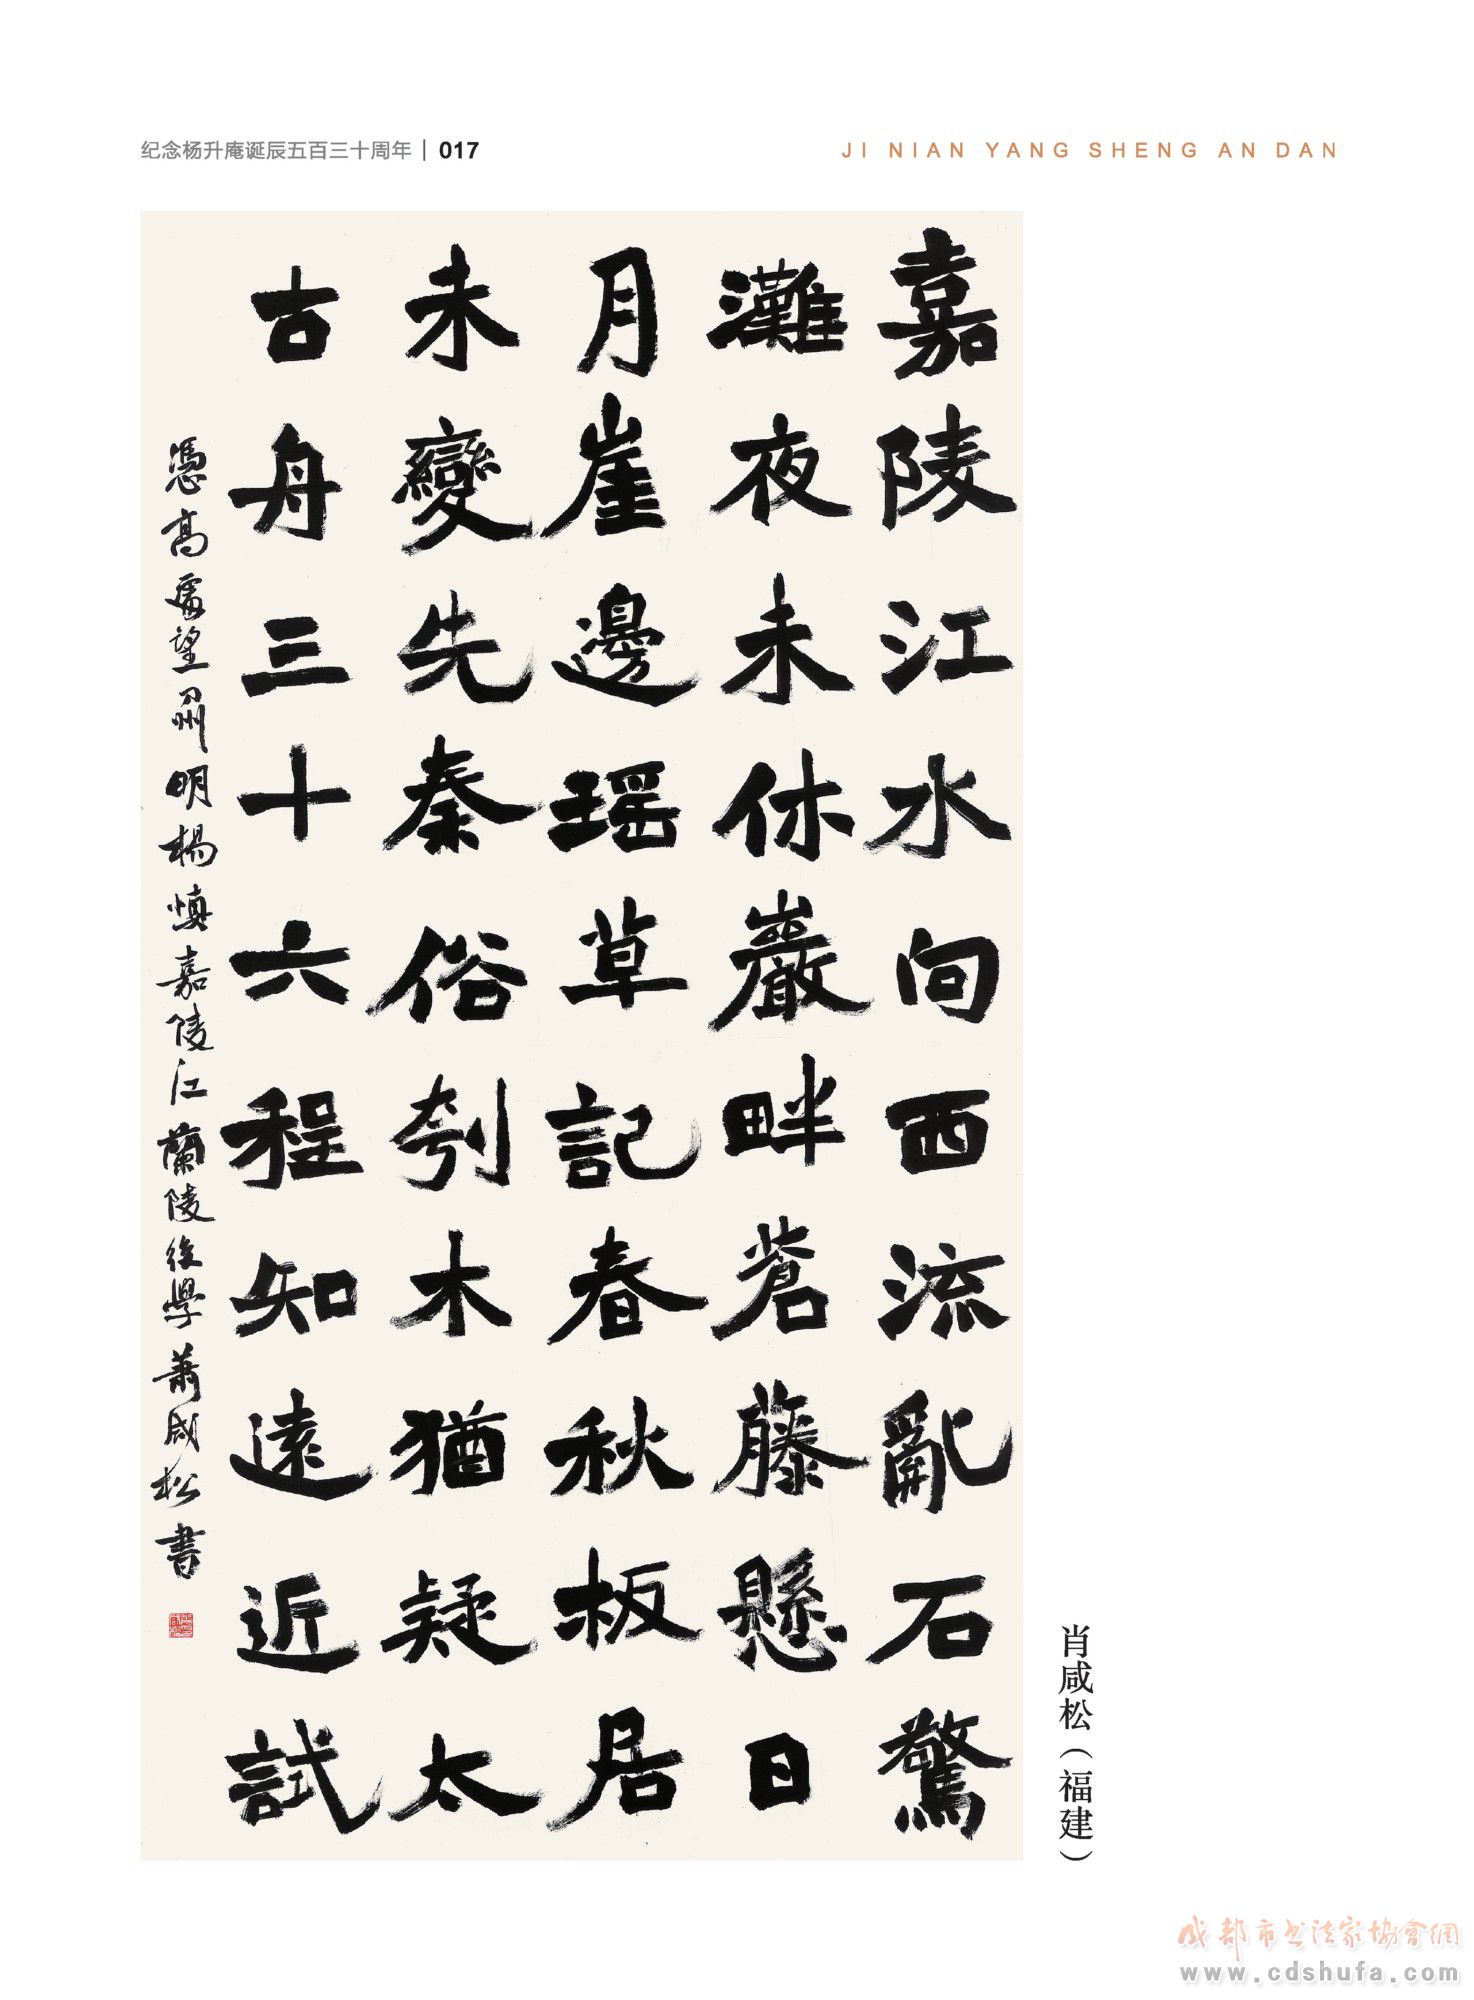 纪念杨升庵诞辰五百三十周年 | 017
JI NIAN YANG SHENG AN DAN
嘉陵江水向西流亂石驚
灘夜未休巖畔蒼藤懸日
月崖邊瑶草記春秋板居
未變先秦俗刳木猶疑太
古舟三十六程知遠近試
憑高處望刀州明楊慎嘉陵江蘭陵後學蕭咸松書
肖咸松（福建）
成都市书法家協會網
www.cdshufa.com